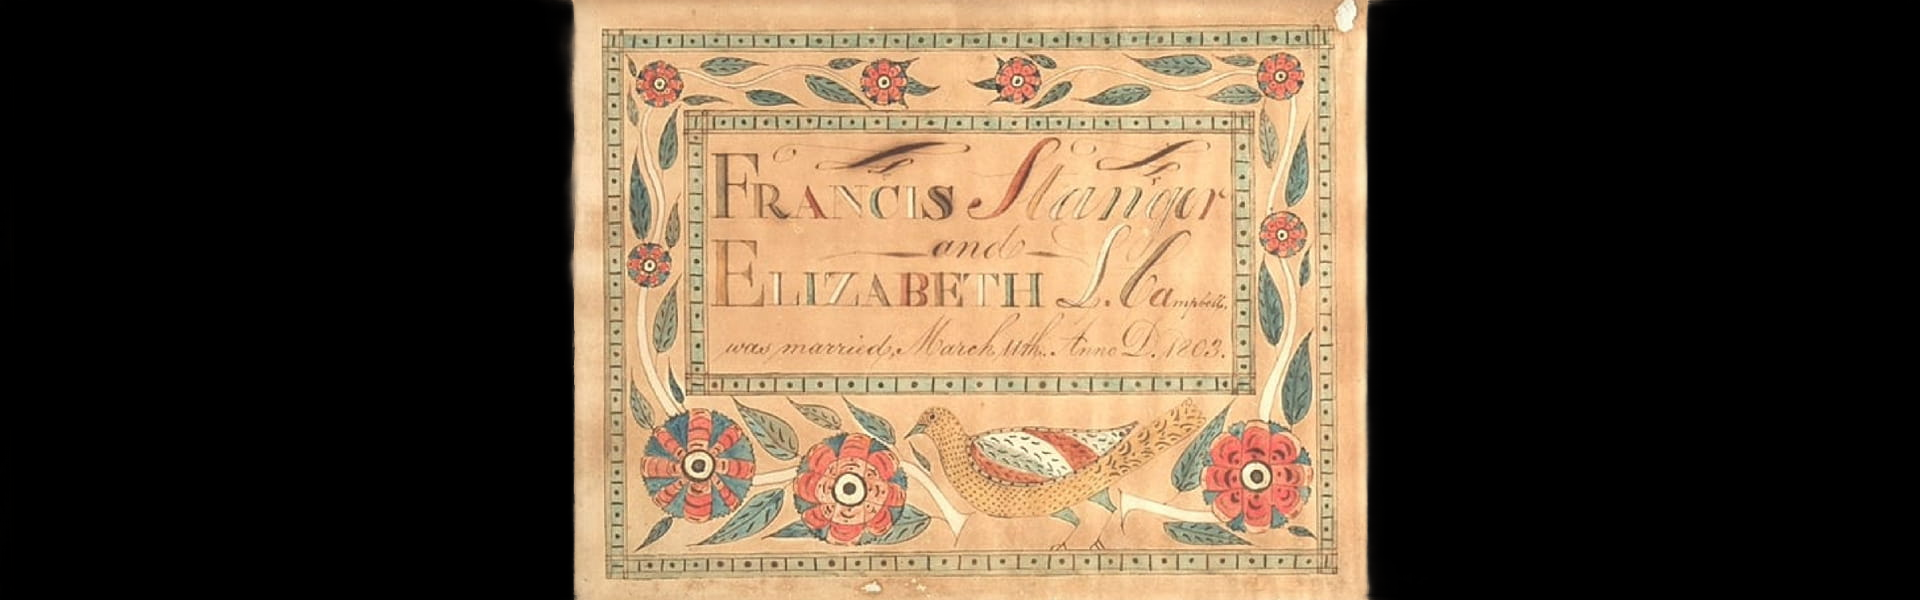 FRANCIS Stanger
and
ELIZABETH L. Campbell,
was married, March 11th. Anno D. 1803.